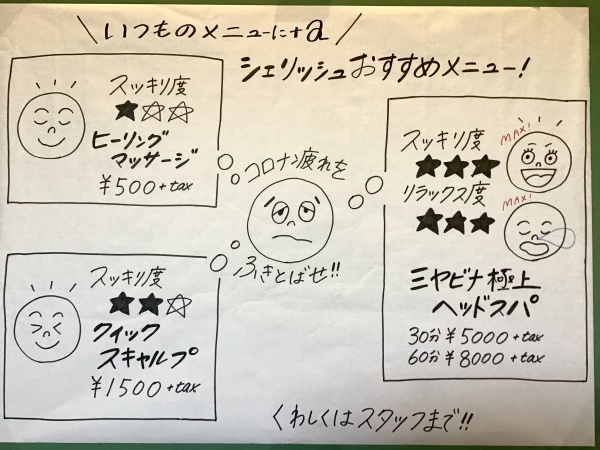 \いつものメニューに+a/
シェリッシュおすすめメニュー!
スッキリ度
★☆☆
ヒーリング
マッサージ
¥500+tax
コロナ疲れを
ふきとばせ!!
スッキリ度
★★☆
クィック
スキャルプ
¥1500+tax
スッキリ度
★★★
MAX!
リラックス度
★★★
MAX!
ミヤビナ極上
ヘッドスパ
30分¥5000+tax
60分¥8000+tax
くわしくはスタッフまで!!